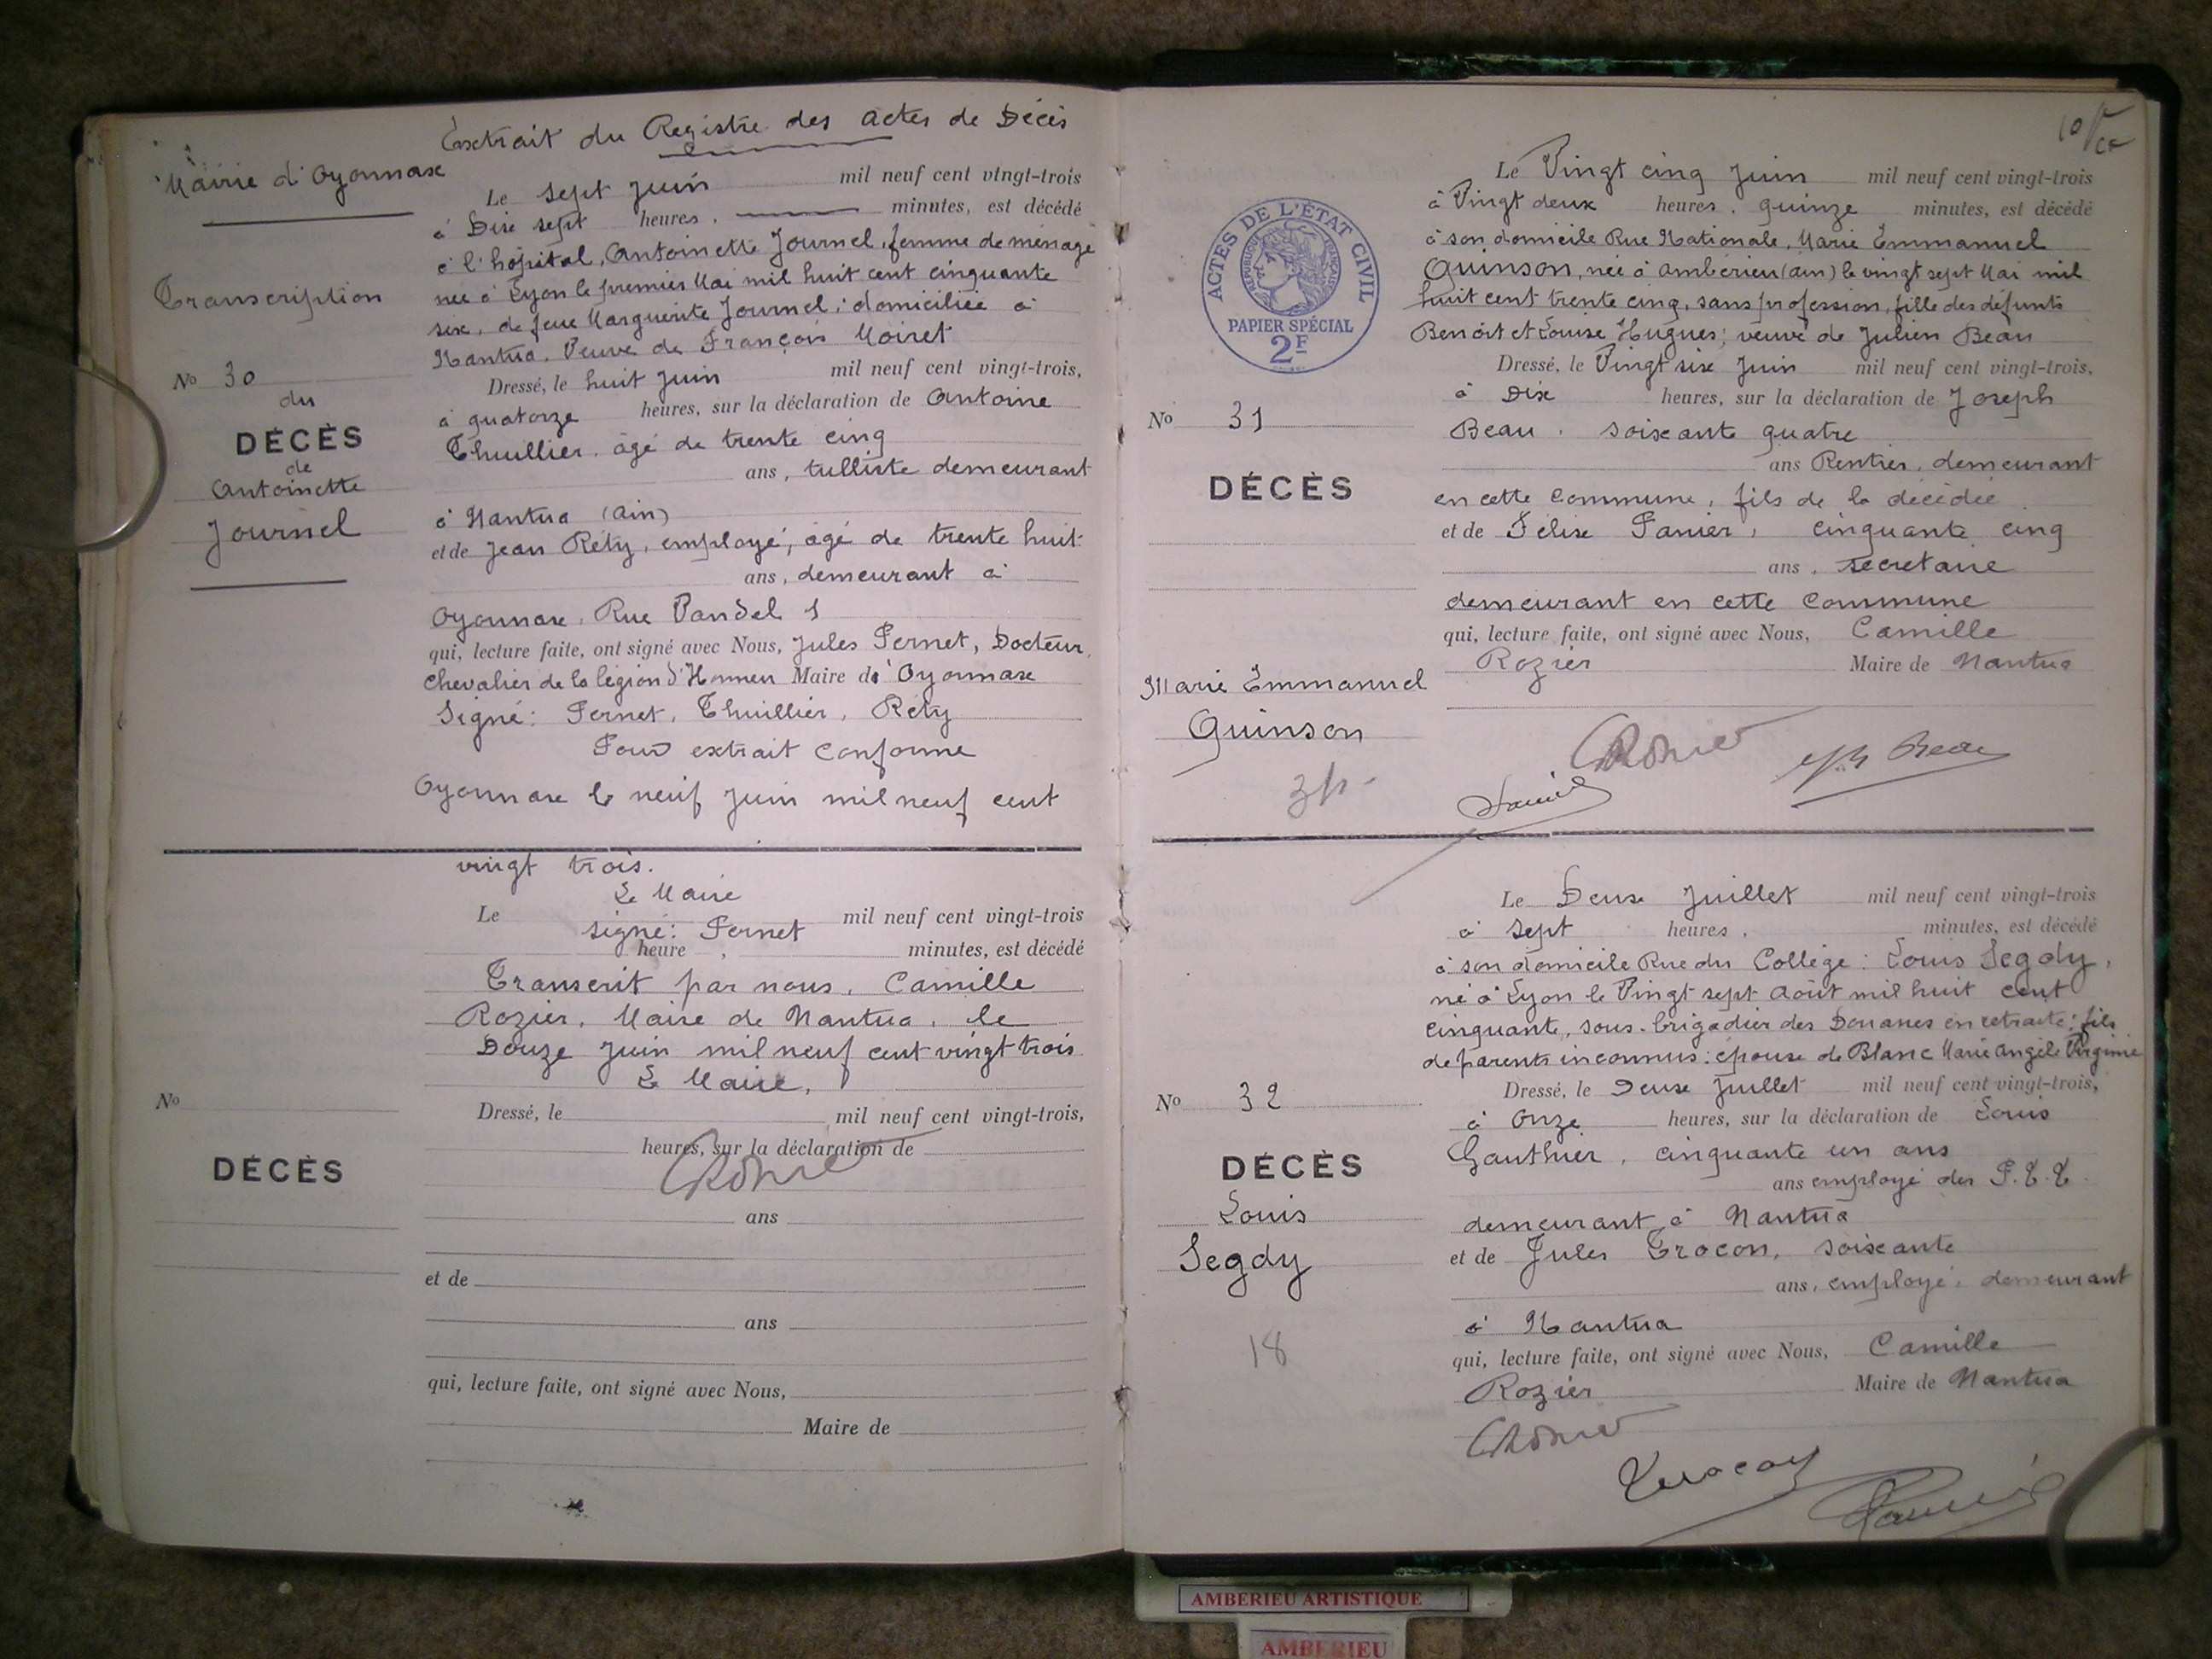 Extrait du Registre des actes de Décès
Mairie d'Oyonnax
Transcription
Le sept juin mil neuf cent vingt-trois
à Dix sept heures, minutes, est décédé
à l'hôpital, Antoinette Journel, femme de ménage
née à Lyon le premier Mai mil huit cent cinquante
six, de feue Marguerite Journel; domiciliée à
Nantua. Veuve de François Moiret
No 30
du
DÉCÈS
de
Antoinette
Journel
Dressé, le huit juin mil neuf cent vingt-trois,
à quatorze heures, sur la déclaration de Antoine
Thuillier, âgé de trente cinq
ans, tulliste demeurant
à Nantua (Ain)
et de Jean Réty, employé, âgé de trente huit
ans, demeurant à
Oyonnax, Rue Vandel 1
qui, lecture faite, ont signé avec Nous, Jules Pernet, Docteur,
Chevalier de la légion d'Honneu Maire d' Oyonnax
Signé: Pernet, Thuillier, Réty
Pour extrait conforme
Oyonnax le neuf juin mil neuf cent
vingt trois.
Le Maire
Le mil neuf cent vingt-trois
signé: Pernet
heure , minutes, est décédé
Transcrit par nous, Camille
Rozier, Maire de Nantua, le
Douze juin mil neuf cent vingt trois
Le Maire,
No
DÉCÈS
Dressé, le mil neuf cent vingt-trois,
heures, sur la déclaration de
ans
et de
ans
qui, lecture faite, ont signé avec Nous,
Maire de
10
ACTES DE L'ÉTAT CIVIL
RÉPUBLIQUE FRANÇAISE
PAPIER SPÉCIAL
2F
Le Vingt cinq juin mil neuf cent vingt-trois
à Vingt deux heures, quinze minutes, est décédé
à son domicile Rue Nationale, Marie Emmanuel
Quinson, née à Ambérieu (Ain) le vingt sept Mai mil
huit cent trente cinq, sans profession, fille des défunts
Benoit et Louise Hugues; veuve de Julien Beau
No 31
DÉCÈS
Marie Emmanuel
Quinson
Dressé, le Vingt six juin mil neuf cent vingt-trois,
à Dix heures, sur la déclaration de Joseph
Beau, soixante quatre
ans Rentier, demeurant
en cette Commune, fils de la décédée
et de Félix Panier, cinquante cinq
ans, secrétaire
demeurant en cette Commune
qui, lecture faite, ont signé avec Nous, Camille
Rozier Maire de Nantua
Beau
Le Deux Juillet mil neuf cent vingt-trois
à sept heures, minutes, est décédé
à son domicile Rue du Collège: Louis Segdy,
né à Lyon le Vingt sept Août mil huit cent
cinquante, sous-brigadier des Douanes en retraite; fils
de parents inconnus; époux de Blanc Marie Angèle Virginie
No 32
DÉCÈS
Louis
Segdy
18
Dressé, le Deux Juillet mil neuf cent vingt-trois,
à Onze heures, sur la déclaration de Louis
Gauthier, cinquante un ans
ans employé des P.T.T.
demeurant à Nantua
et de Jules Trocon, soixante
ans, employé, demeurant
à Nantua
qui, lecture faite, ont signé avec Nous, Camille
Rozier Maire de Nantua
AMBERIEU ARTISTIQUE
AMBERIEU